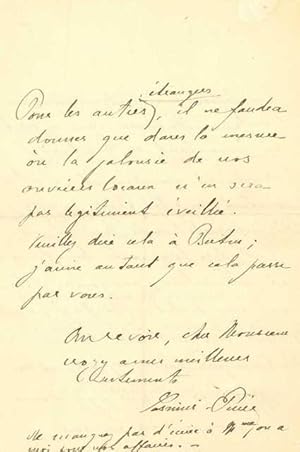 étrangers
Pour les autres, il ne faudra
donner que dans la mesure
où la jalousie de nos
ouvriers locaux n'en sera
pas légitiment éveillée.
Veuillez dire cela à
j'aime autant que cela passe
par vous.
Au revoir, cher Monsieur
croyez à mes meilleurs
sentiments
Ne manquez pas d'écrire à Mme ou à
moi pour nos affaires. -